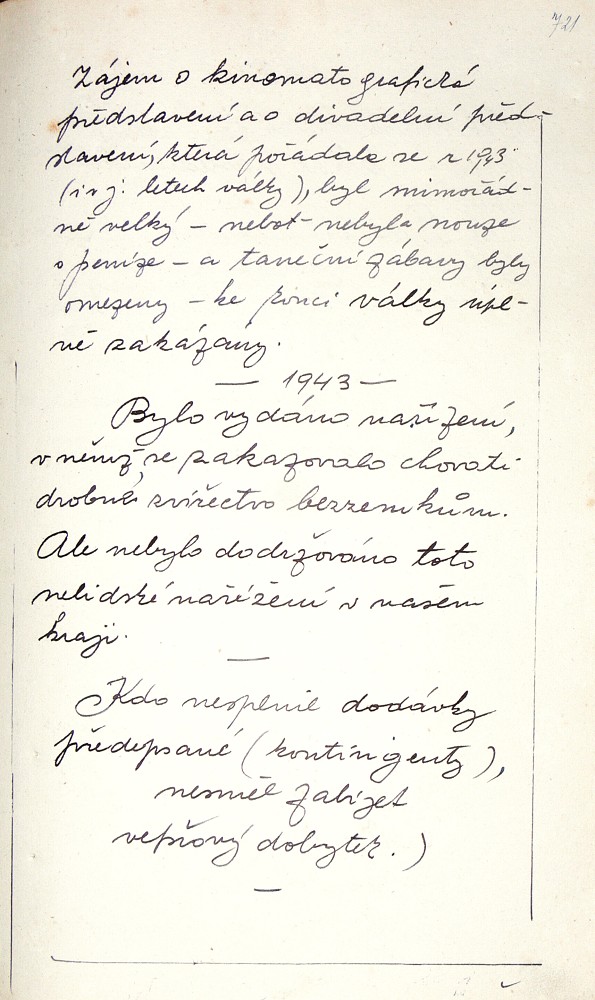 721
Zájem o kinematografická
představení a o divadelní před-
stavení, která pořádala se r 1943
(i v j. letech války), byl mimořád-
ně velký – neboť nebyla nouze
o peníze – a taneční zábavy byly
omezeny – ke konci války úpl-
ně zakázány.
— 1943 —
Bylo vydáno nařízení,
v němž se zakazovalo chovati
drobné zvířectvo bezzemkům.
Ale nebylo dodržováno toto
nelidské nařížení v našem
kraji.
Kdo nesplnil dodávky
předepsané (kontingenty),
nesměl zabízet
vepřový dobytek.)